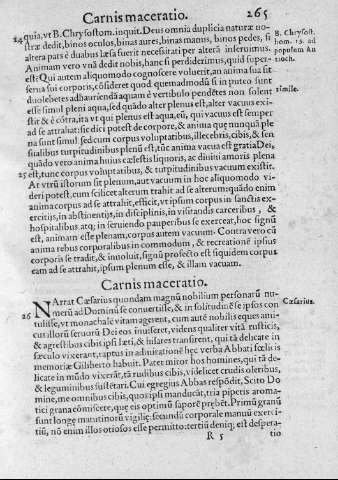 Carnis maceratio. 265
24 quia, vt B. Chrysostom. inquit. Deus omnia duplicia naturæ no-
stræ dedit, binos oculos, binas aures, binas manus, binos pedes, si
altera pars è duabus læsa fuerit necessitati per alterā inseruimus.
Animam vero vnā dedit nobis, hanc si perdiderimus, quid super-
est: Qui autem aliquo modo cognoscere voluerit, an anima sua sit
serua sui corporis, cōsideret quod quemadmodū si in puteo sunt
duo lebetes ad hauriendā aquam è vertibulo pendētes non solent
esse simul pleni aqua, sed quādo alter plenus est, alter vacuus exi-
stit & è cōtra, ita vt qui plenus est aqua, eū, qui vacuus est semper
ad se attrahat: sic dici potest de corpore, & anima quę nunquā ple
na sunt simul sed cum corpus voluptatibus, illecebris, cibis, & sen
sualibus turpitudinibus plenū est, tūc anima vacua est gratia Dei,
quādo vero anima huius cœlestis liquoris, ac diuini amoris plena
25 est, tunc corpus voluptatibus, & turpitudinibus vacuum existit.
At vtrū istorum sit plenum, aut vacuum in hoc aliquomodo vi-
deri potest, cum scilicet alterum trahit ad se alterum: quādo enim
anima corpus ad se attrahit, efficit, vt ipsum corpus in sanctis ex-
ercitijs, in abstinentijs, in disciplinis, in visitandis carceribus, &
hospitalibus atq; in seruiendo pauperibus se exerceat, hoc signū
est, animam esse plenam, corpus autem vacuum. Contra vero cū
anima rebus corporalibus in commodum, & recreationē ipsius
corporis se tradit, & inuoluit, signū profecto est siquidem corpus
eam ad se attrahit, ipsum plenum esse, & illam vacuam.
B. Chrysost.
hom. ad
populum An
tioch.
simile.
Carnis maceratio.
26 NArrat Cæsarius quondam magnū nobilium personarū nu-
merū ad Dominū se conuertisse, & in solitudinē se ipsos con
tulisse, vt monachalē vitam agerent, cum autē nobilis eques ami-
cus illorū seruorū Dei eos inuiseret, videns qualiter vitā rusticis,
& agrestibus cibis ipsi læti, & hilares transirent, qui tā delicate in
sæculo vixerant, raptus in admirationē hęc verba Abbati fœlicis
memoriæ Giliberto habuit. Pater miror hos homines, qui tā de-
licate in mūdo vixerāt, tā rudibus cibis, videlicet crudis oleribus,
& leguminibus sustētari. Cui egregius Abbas respōdit, Scito Do
mine, me omnibus cibis, quos ipsi manducāt, tria piperis aroma-
tici grana cōmiscere, quę eis optimū saporē prębēt. Primū granū
sunt longę matutinorū vigilię: secundū corporale manuū exerci-
tiū, nō enim illos otiosos esse permitto: tertiū deniq; est despera-
Cæsarius.
R 5 tio